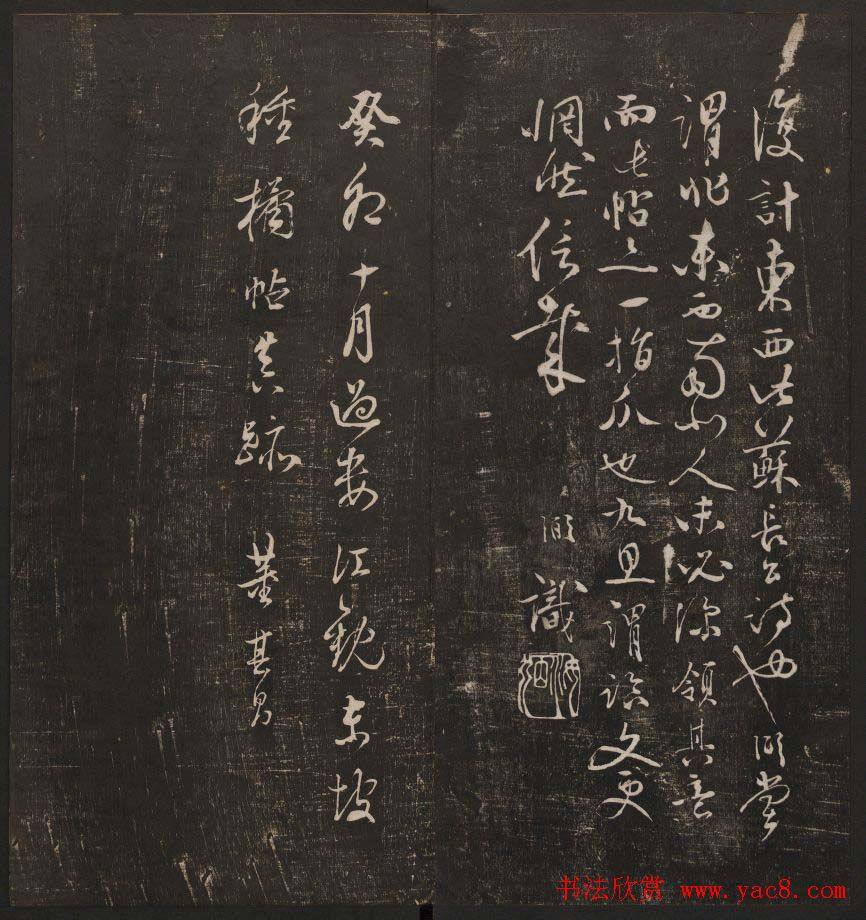 復計東西此蘇長公詩也嘗
謂非東西南北人未必深領其意
而此帖之一指爪也謂文更
惘然信哉
識
癸卯十月過婁江觀東坡
種橘帖真跡 董其昌
书法欣赏 www.yac8.com